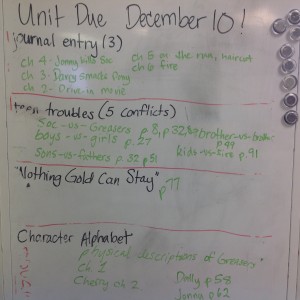 Unit Due December 10!
journal entry (3)
ch 4 - Jonny kills Soc
ch 5 on the run, haircut
ch 3 - Darry smacks Pony
ch 6 fire
ch 2 - Drive-in movie
teen troubles (5 conflicts)
Soc-vs-Greasers p 8, p 32,
brother-vs-brother
boys-v-girls p. 27
Sons-vs-fathers p. 32 p51
kids-vs-fire p. 91
"Nothing Gold Can Stay"
p77
Character Alphabet
physical descriptions of Greasers
Ch 1
Dally p 58
Cherry ch 2
p 62